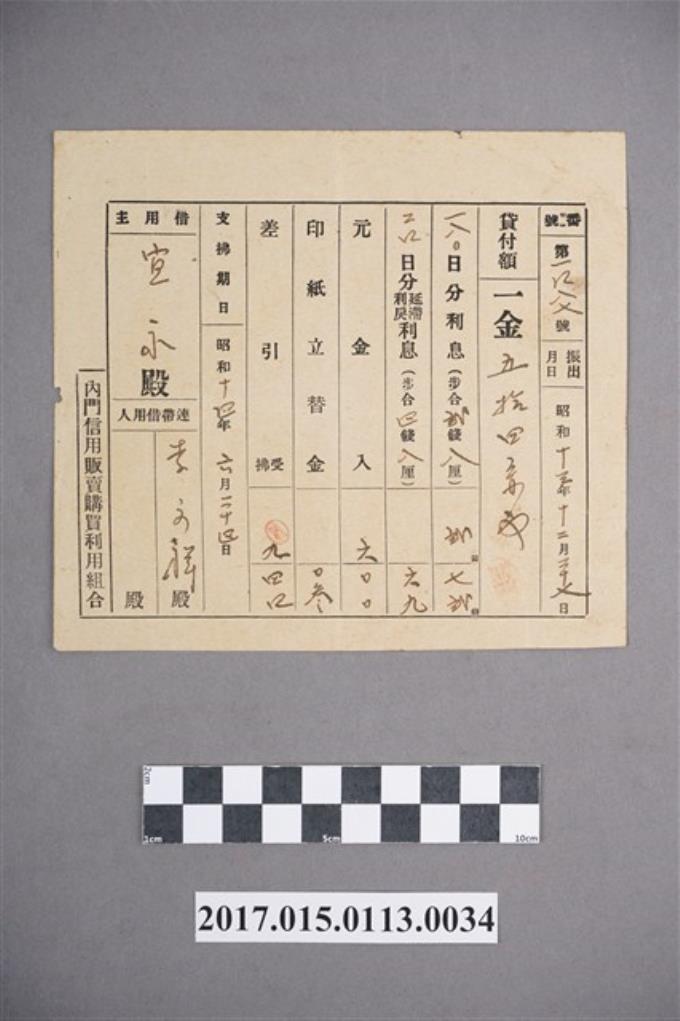 番號 第一〇八七號 振出月日 昭和十三年十二月二十七日
貸付額 一金五拾四円也
一八〇日分利息(步合貳錢八厘) 貳七貳
二〇日分延滯利戾利息(步合四錢八厘) 六九
元金入 六〇〇
印紙立替金 〇參
差引受拂 九四〇
支拂期日 昭和十四年六月二十四日
借用主 宣永殿
連帶借用人 李文 殿
殿
內門信用販賣購買利用組合
2cm
1cm 5cm 10cm
2017.015.0113.0034